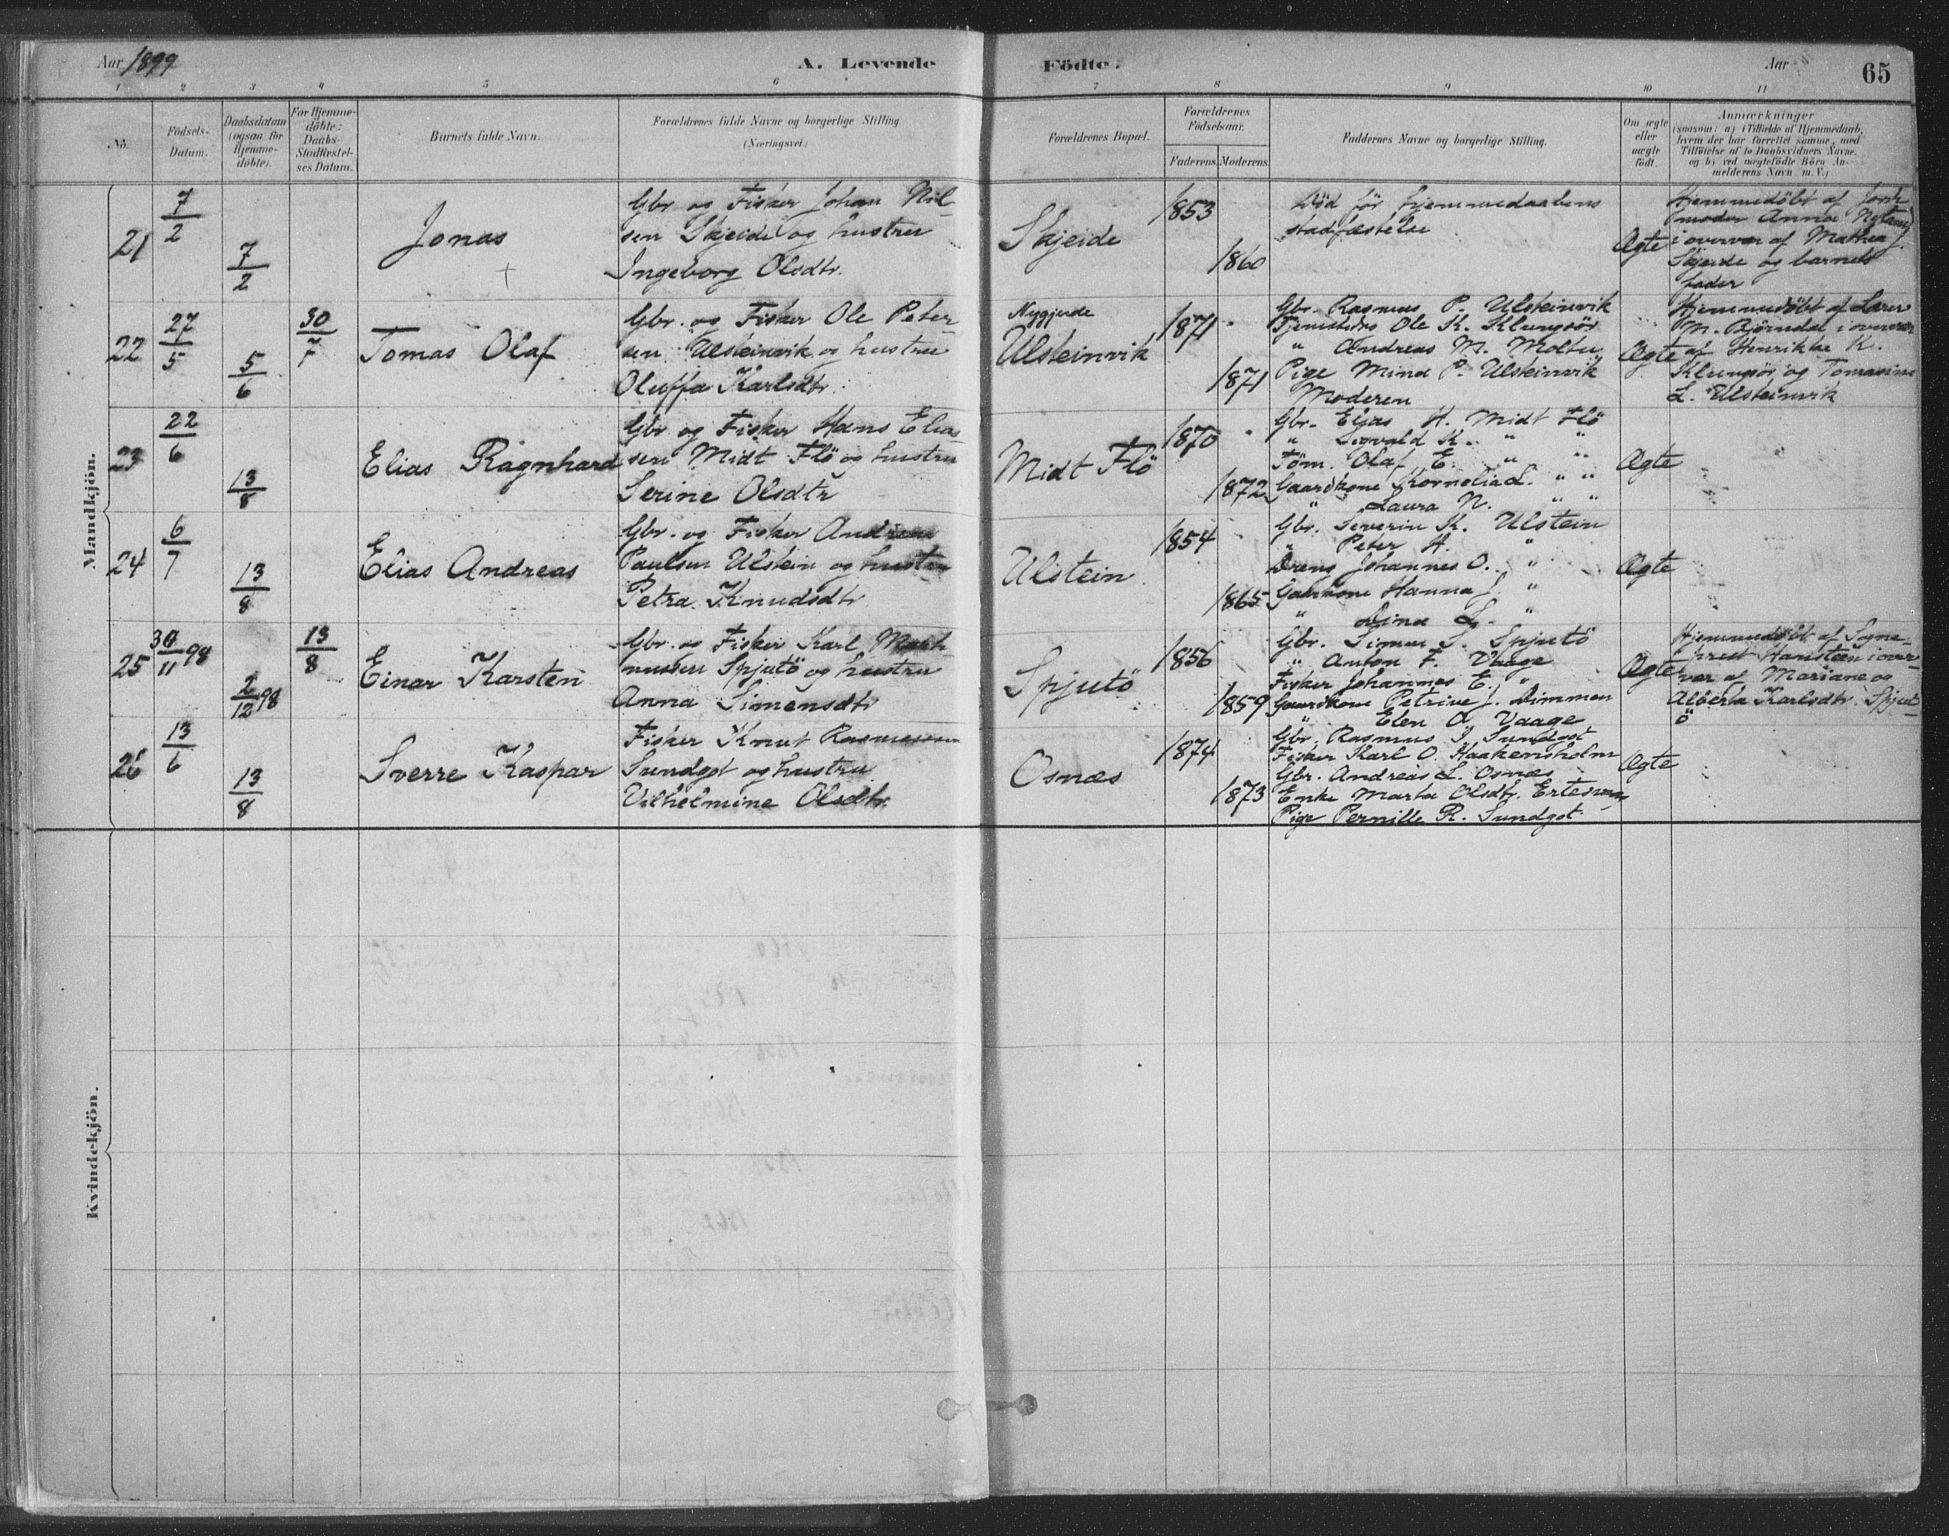 Aar 1899 A. Levende Födte. Aar 65
1 2 3 4 5 6 7 8 9 10 11
No.
Födsels-
Datum.
Daabsdatum
(ogsaa for
Hjemme-
döbte).
For Hjemme-
döbte:
Daabs-
Stadfæstel-
ses Datum.
Barnets fulde Navn.
Forældrenes fulde Navne og borgerlige Stilling
(Næringsvei.)
Forældrenes Bopæl.
Forældrenes
Födselsaar.
Faderens. Moderens.
Faddernes Navne og borgerlige Stilling.
Om ægte
eller
uægte
födt.
Anmærkninger
(saasom: a) i Tilfælde af Hjemmedaab,
hvem der har forrettet samme, med
Tilföielse af to Daabsvidners Navne,
og b) ved uægtefödte Börn An-
melderens Navn m. V.)
Mandkjön.
21
7/2
7/2
Jonas
Gbr. og Fisker Johan Nil-
sen Skjeide og hustru
Ingeborg Olsdtr.
Skjeide
1853
1860
Död för hjemmedaabens
stadfæstelse
Ægte
Hjemmedöbt af Jord-
moder Anna
i overvær af Mathea
Skjeide og barnets
fader
22
27/5
5/6
30/7
Tomas Olaf
Gbr. og Fisker Ole Peter-
sen Ulsteinvik og hustru
Oluffa Karlsdtr.
Nygjerde
Ulsteinvik
1871
1871
Gbr. Rasmus P. Ulsteinvik
Ole K. Klungsör
" Andreas M. Moltu
Pige Mina P. Ulsteinvik
Moderen
Ægte
Hjemmedöbt af Lærer
M. Björndal i overvær
af Henrikke K.
Klungsör og Tomasine
L. Ulsteinvik
23
22/6
13/8
Elias Ragnhard
Gbr. og Fisker Hans Elia-
sen Midt Flö og hustru
Serine Olsdtr
Midt Flö
1870
1872
Gbr. Elias H. Midt Flö
" Sigvald K. " "
Töm. Olaf E. " "
Gaardkone Kornelia L. " "
" Laura N. " "
Ægte
24
6/7
13/8
Elias Andreas
Gbr. og Fisker Andreas
Paulsen Ulstein og hustru
Petra Knudsdtr
Ulstein
1854
1865
Gbr. Severin K. Ulstein
" Peter H. "
Dreng Johannes O. "
Gaardkone Hanna J. "
" Dina L. "
Ægte
25
30/11 98
2/12 98
13/8
Einar Karsten
Gbr. og Fisker Karl Mart-
nussen Spjutö og hustru
Anna Simensdtr
Spjutö
1856
1859
Gbr. Simen S. Spjutö
" Anton F. Vaage
Fisker Johannes E. "
Gaardkone Petrine J. Dimmen
" Elen A. Vaage
Ægte
Hjemmedöbt af Sogne-
prest Hanstein i over-
vær af Mariane og
Alberta Karlsdtr. Spjut-
ö
26
13/6
13/8
Sverre Kaspar
Fisker Knut Rasmussen
Sundgot og hustru
Vilhelmine Olsdtr.
Osnæs
1874
1873
Gbr. Rasmus J. Sundgot
Fisker Karl O. Haakensholm
Gbr. Andreas L. Osnæs
Enke Marta Olsdtr. Ertesvaag
Pige Pernille R. Sundgot
Ægte
Kvindekjön.